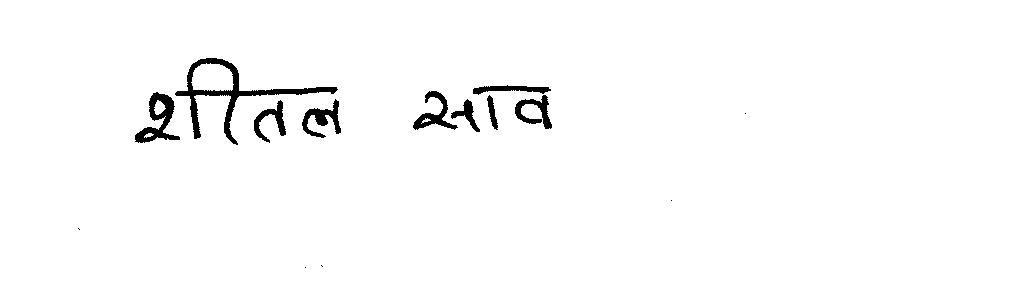 शीतल साव